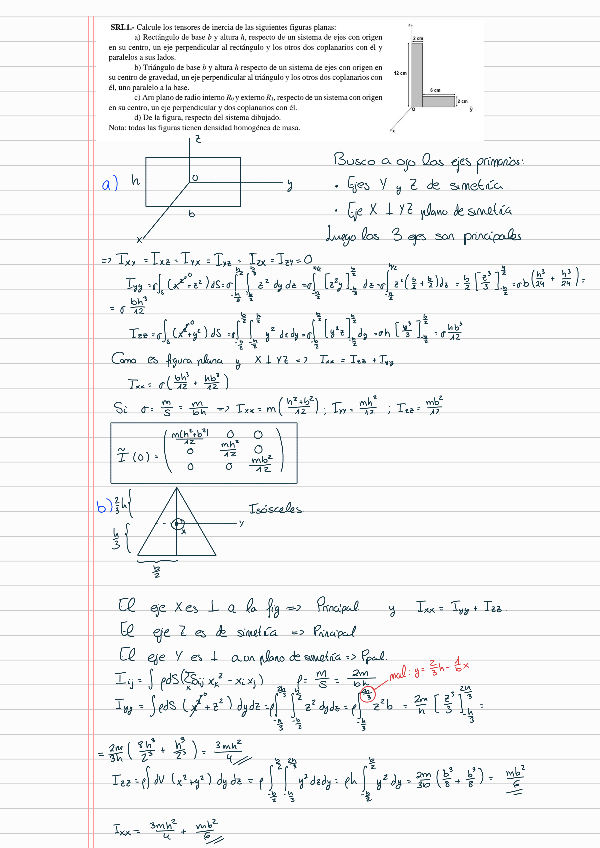 SRL1.- Calcule los tensores de inercia de las siguientes figuras planas:
a) Rectángulo de base b y altura h, respecto de un sistema de ejes con origen
en su centro, un eje perpendicular al rectángulo y los otros dos coplanarios con él y
paralelos a sus lados.
b) Triángulo de base b y altura h respecto de un sistema de ejes con origen en
su centro de gravedad, un eje perpendicular al triángulo y los otros dos coplanarios con
él, uno paralelo a la base.
c) Aro plano de radio interno R₀ y externo R₁, respecto de un sistema con origen
en su centro, un eje perpendicular y dos coplanarios con él.
d) De la figura, respecto del sistema dibujado.
Nota: todas las figuras tienen densidad homogénea de masa.
2 cm
12 cm
6 cm
2 cm
O
y
a)
z
h
O
y
b
x
Busco a ojo los ejes primarios:
• Ejes Y y Z de simetría
• Eje X ⊥ YZ plano de simetría
Luego los 3 ejes son principales
=> Ixy = Ixz = Iyx = Iyz = Izx = Izy = 0
Iyy = σ∫s (x²→0 + z²) dS = σ∫∫ z² dy dz = σ∫ [z²y] dz = σ∫ z² (b/2 + b/2) dz = b/2 [z³/3] = σb (h³/24 + h³/24) =
= σ bh³/12
Izz = σ∫s (x²→0 + y²) dS = σ∫∫ y² dz dy = σ∫ [y²z] dy = σh [y³/3] = σ hb³/12
Como es figura plana y X ⊥ YZ => Ixx = Izz + Iyy
Ixx = σ (bh³/12 + hb³/12)
Si σ = m/S = m/bh => Ixx = m (h²+b²/12) ; Iyy = mh²/12 ; Izz = mb²/12
Ĩ (0) = ( m(h²+b²)/12 0 0
0 mh²/12 0
0 0 mb²/12 )
b) 2/3 h {
h/3 {
y
x
b/2
Isósceles
El eje X es ⊥ a la fig => Principal y Ixx = Iyy + Izz.
El eje Z es de simetría => Principal
El eje Y es ⊥ a un plano de simetría => Ppal.
Iij = ∫ρdS (Σk δij xk² - xi xj) ρ = m/S = 2m/bh
mal: y = 2/3 h - 1/b x
Iyy = ∫ρdS (x²→0 + z²) dydz = ρ∫∫ z² dydz = ρ∫ z² b = 2m/h [z³/3] =
= 2m/3h (8h³/2³ + h³/2³) = 3mh²/4
Izz = ρ∫dV (x² + y²) dydz = ρ∫∫ y² dzdy = ρh ∫ y² dy = 2m/3b (b³/8 + b³/8) = mb²/6
Ixx = 3mh²/4 + mb²/6